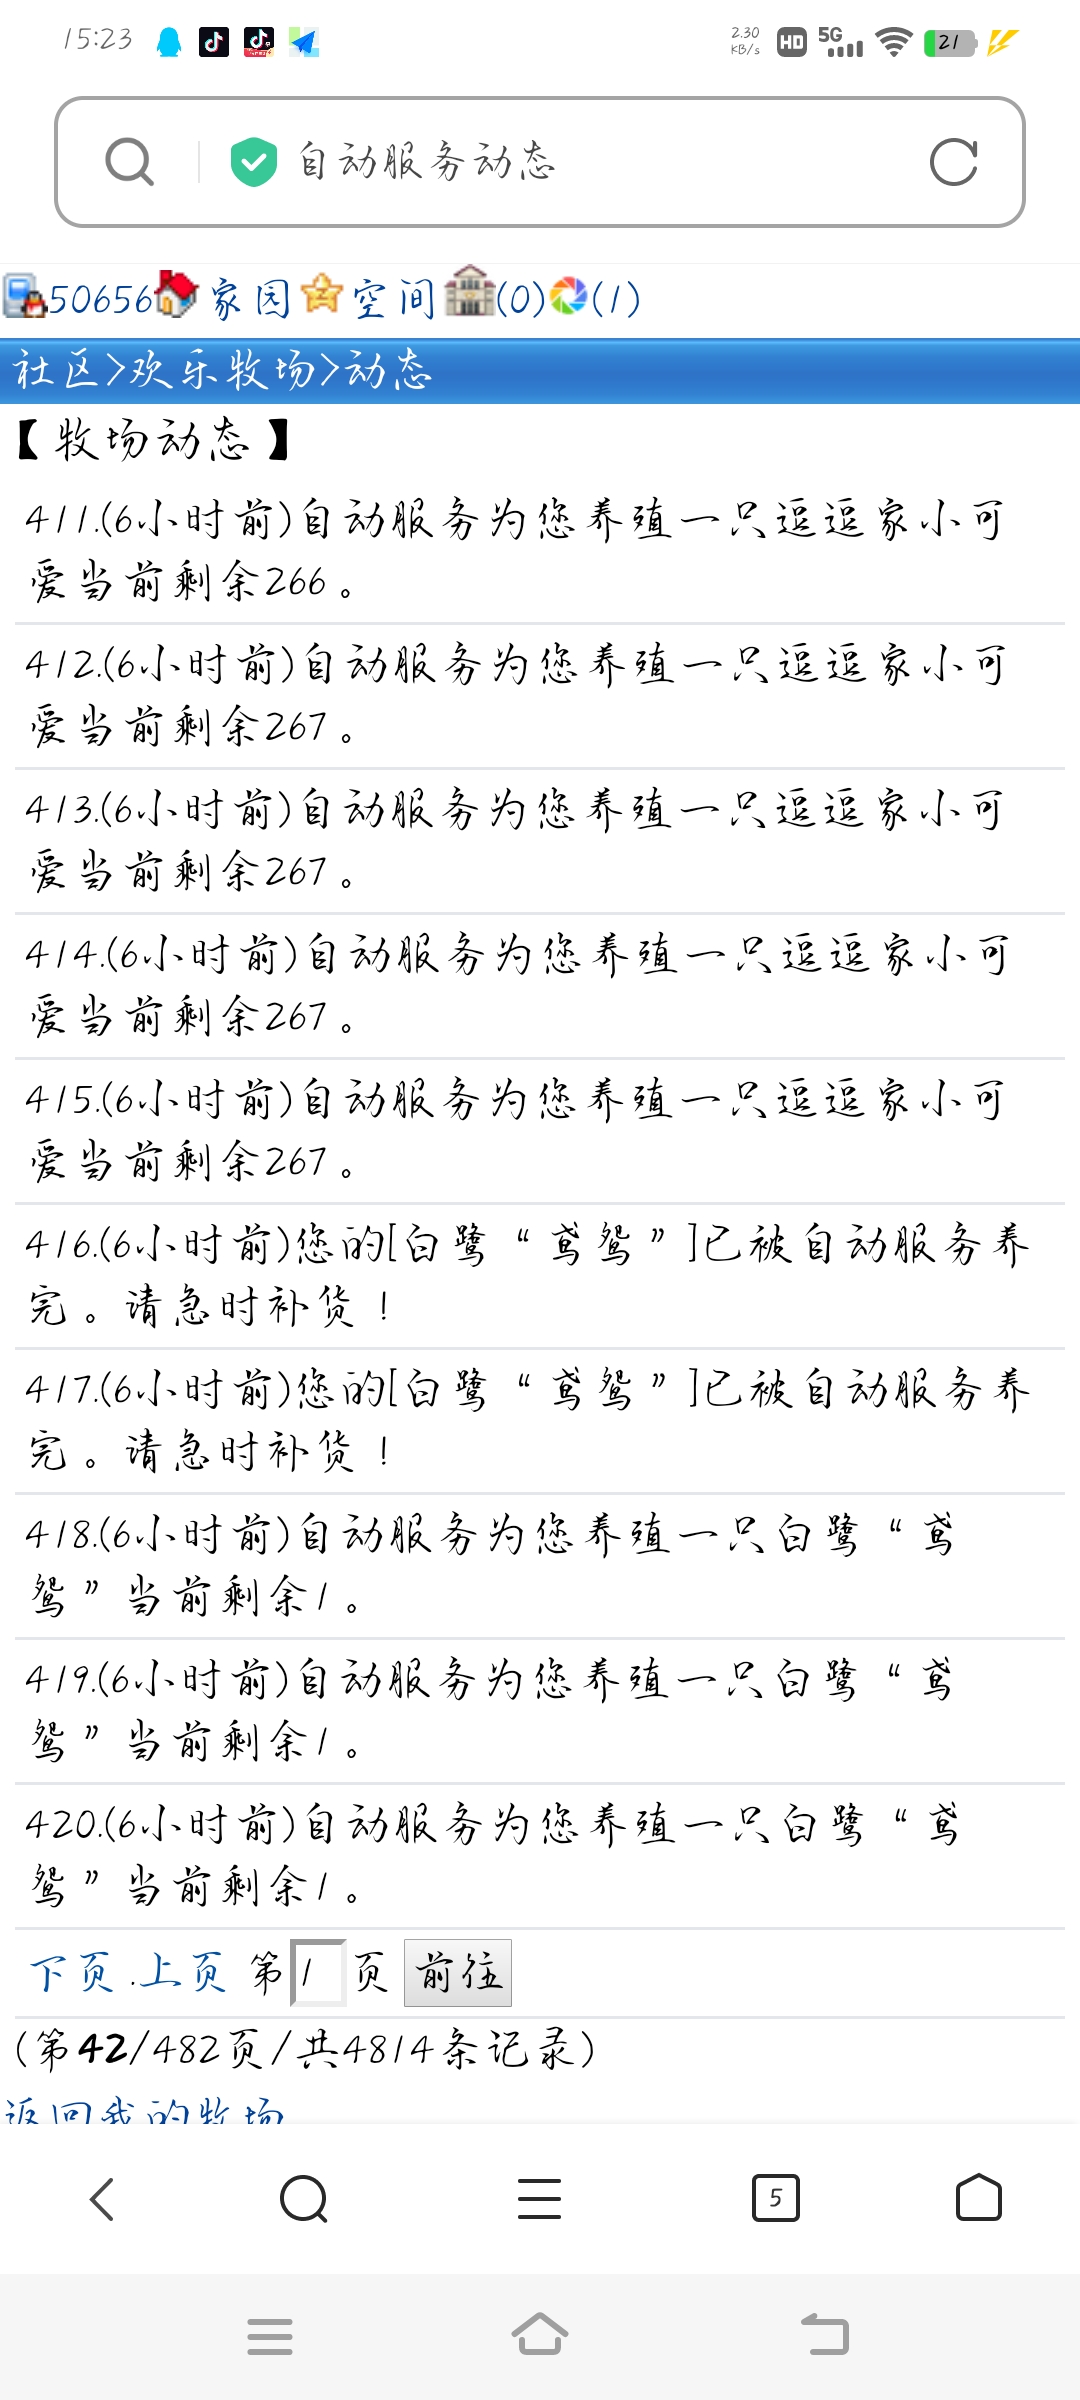 15:23
2.30
KB/s
HD
5G
21
自动服务动态
50656家园空间(0)(1)
社区>欢乐牧场>动态
【牧场动态】
411.(6小时前)自动服务为您养殖一只逗逗家小可
爱当前剩余266。
412.(6小时前)自动服务为您养殖一只逗逗家小可
爱当前剩余267。
413.(6小时前)自动服务为您养殖一只逗逗家小可
爱当前剩余267。
414.(6小时前)自动服务为您养殖一只逗逗家小可
爱当前剩余267。
415.(6小时前)自动服务为您养殖一只逗逗家小可
爱当前剩余267。
416.(6小时前)您的[白鹭“鸢鸳”]已被自动服务养
完。请急时补货！
417.(6小时前)您的[白鹭“鸢鸳”]已被自动服务养
完。请急时补货！
418.(6小时前)自动服务为您养殖一只白鹭“鸢
鸳”当前剩余1。
419.(6小时前)自动服务为您养殖一只白鹭“鸢
鸳”当前剩余1。
420.(6小时前)自动服务为您养殖一只白鹭“鸢
鸳”当前剩余1。
下页.上页 第1页 前往
(第42/482页/共4814条记录)
返回我的牧场
5